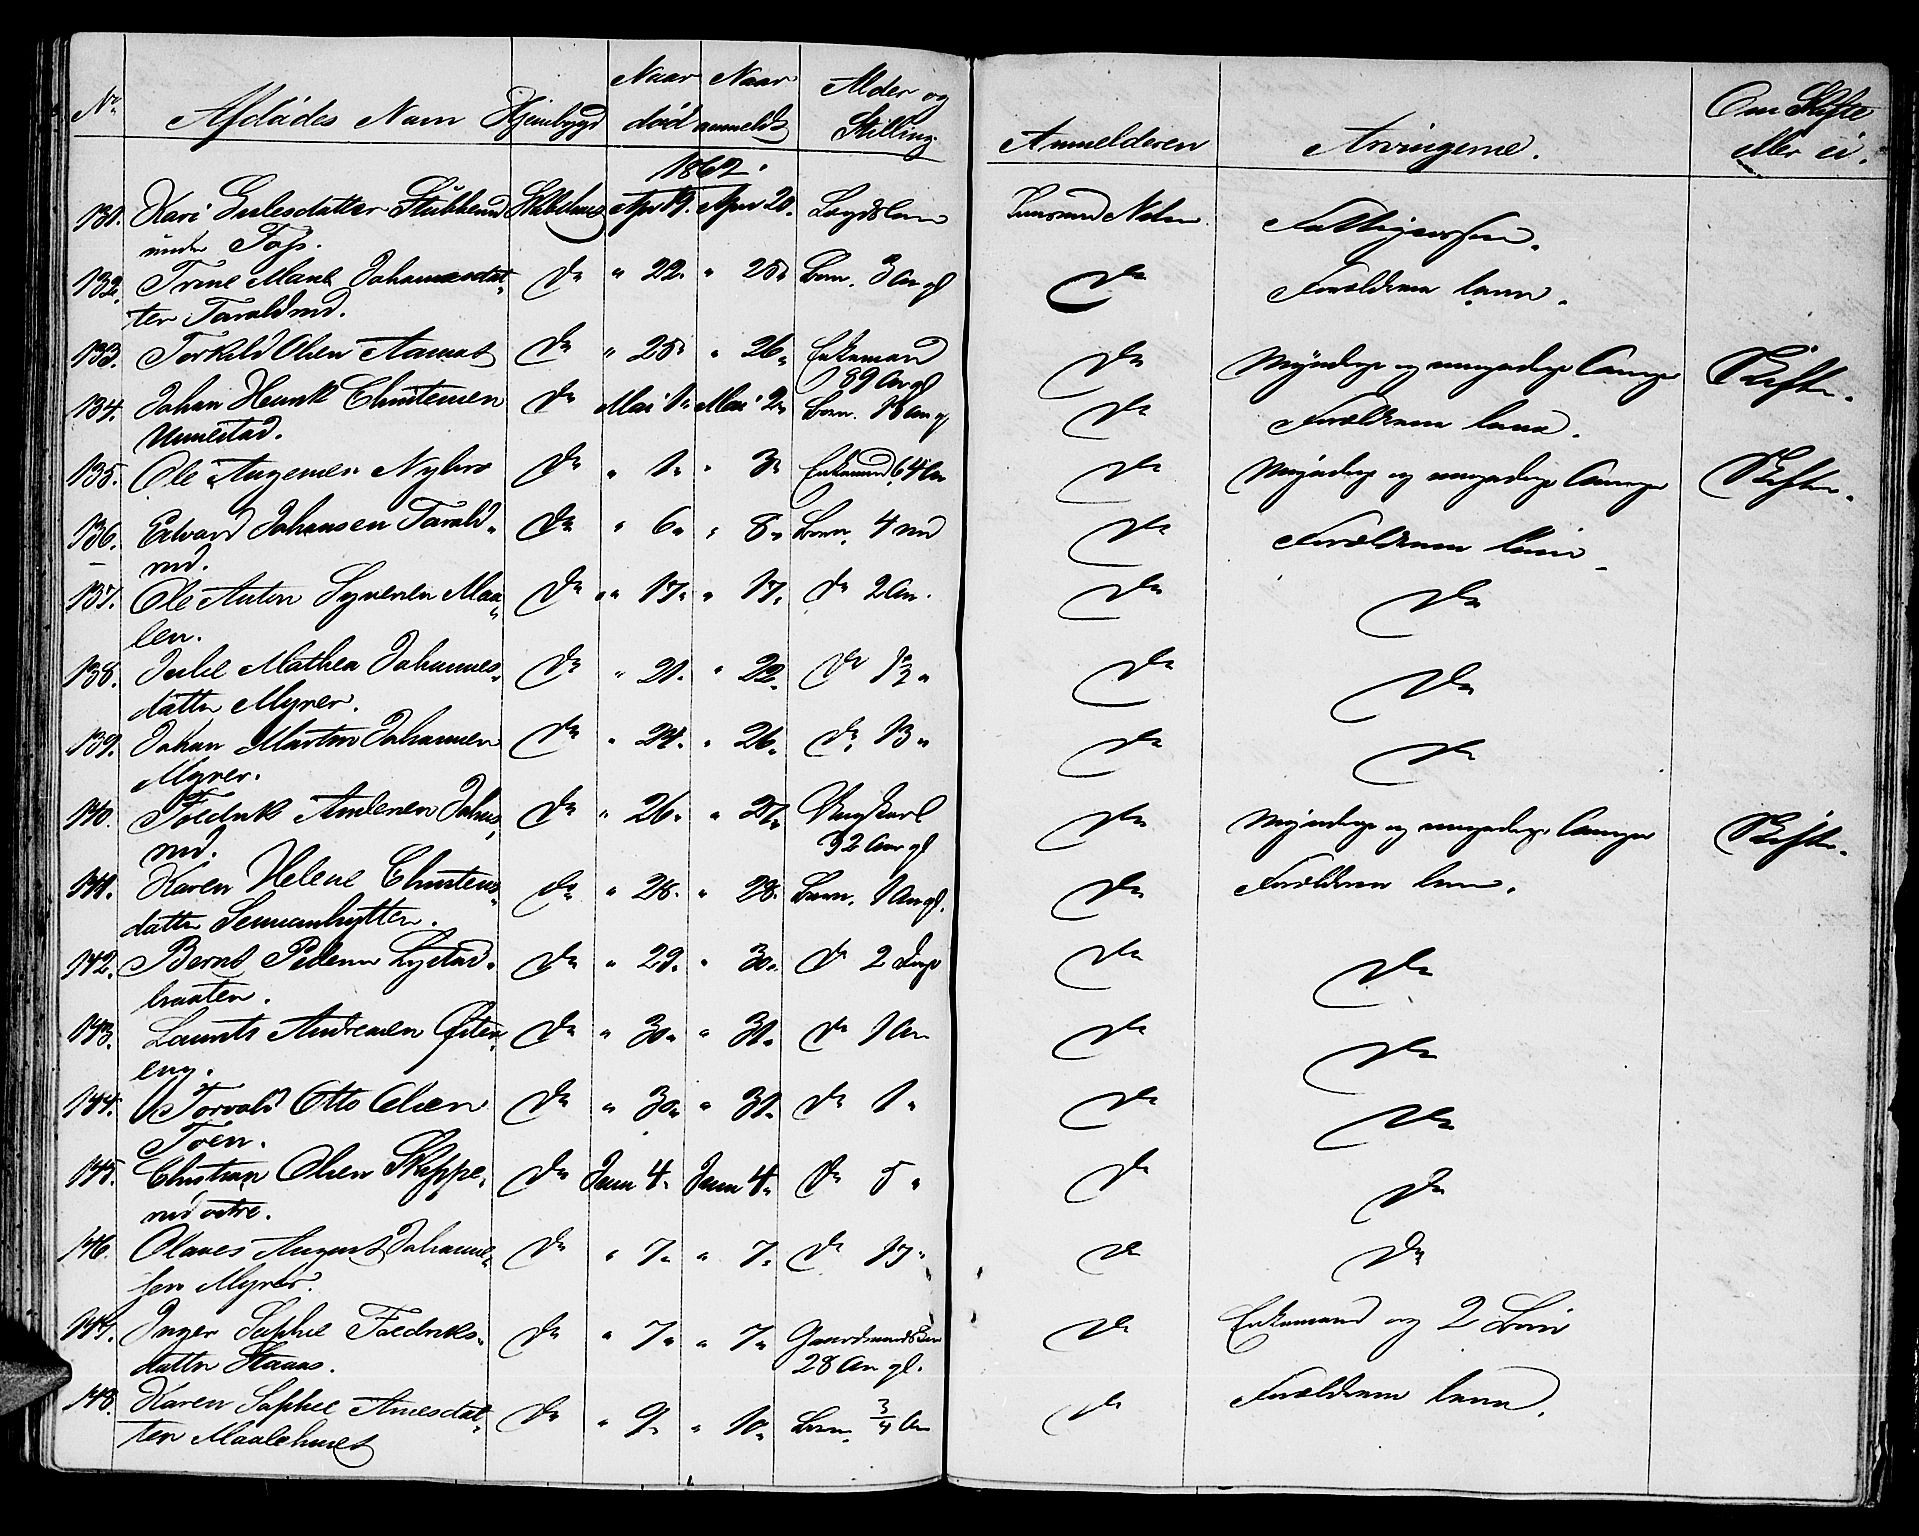 No. Afdødes Navn Hjembygd Naar død Naar anmeldt Alder og Stilling Anmelderen Arvingerne. Om Skifte eller ei.
1862.
131. Kari Gulesdatter Stubberud Apr 19. Apr 20. Lægdslem Lensmand Fattigvæsen.
under Foss.
132. Trine Marie Johannesdat- do " 22. " 25. Barn. 3 Aar gl do Forældrene leve.
ter Taraldrud.
133. Torkild Olsen Aamot do " 25. " 26. Enkemand do Myndige og umyndige Arvinger Skifte.
89 Aar gl
134. Johan Henrik Christensen do Mai 1. Mai 2. Barn. do Forældrene leve.
Unnestad.
135. Ole Nybro do " 1. " 3. Enkemand 64 Aar do Myndige og umyndige Arvinger Skifte.
136. Edvard Johansen Tarald- do " 6. " 8. Barn. 4 do Forældrene leve
rud.
137. Ole Anton Syversen Maa- do " 17. " 17. do 2 Aar. do do
len.
138. Mathea Johannes- do " 21. " 22. do do do
datter Myrer.
139. Johan Martin Johannesen do " 24. " 26. do 13 " do do
Myrer.
140. Fredrik Andersen do " 26. " 27. Ungkarl do Myndige og umyndige Arvinger Skifte.
rud. 32 Aar gl
141. Karen Helene Christens- do " 28. " 28. Barn. 1 Aar gl. do Forældrene leve.
datter
142. Bernt Pedersen Lystad- do " 29. " 30. do 2 Dage do do
braaten.
143. Laurits Andresen Øster- do " 30. " 31. do 1 Aar do do
eng.
144. Torvald Otto Olsen do " 30. " 31. do 1 " do do
Toen.
145. Christian Olsen Skeppe- do Juni 4. Juni 4. do 5 " do do
rud østre.
146. Olaves August Johanne- do " 7. " 7. do " do do
sen Myrer.
147. Inger Sophie Fredriks- do " 7. " 7. Gaardmandskone do Enkemand og 2 Børn
datter 28 Aar gl.
148. Karen Sophie Arnesdat- do " 9. " 10. Barn. 3/4 Aar do Forældrene leve.
ter Maalehuset